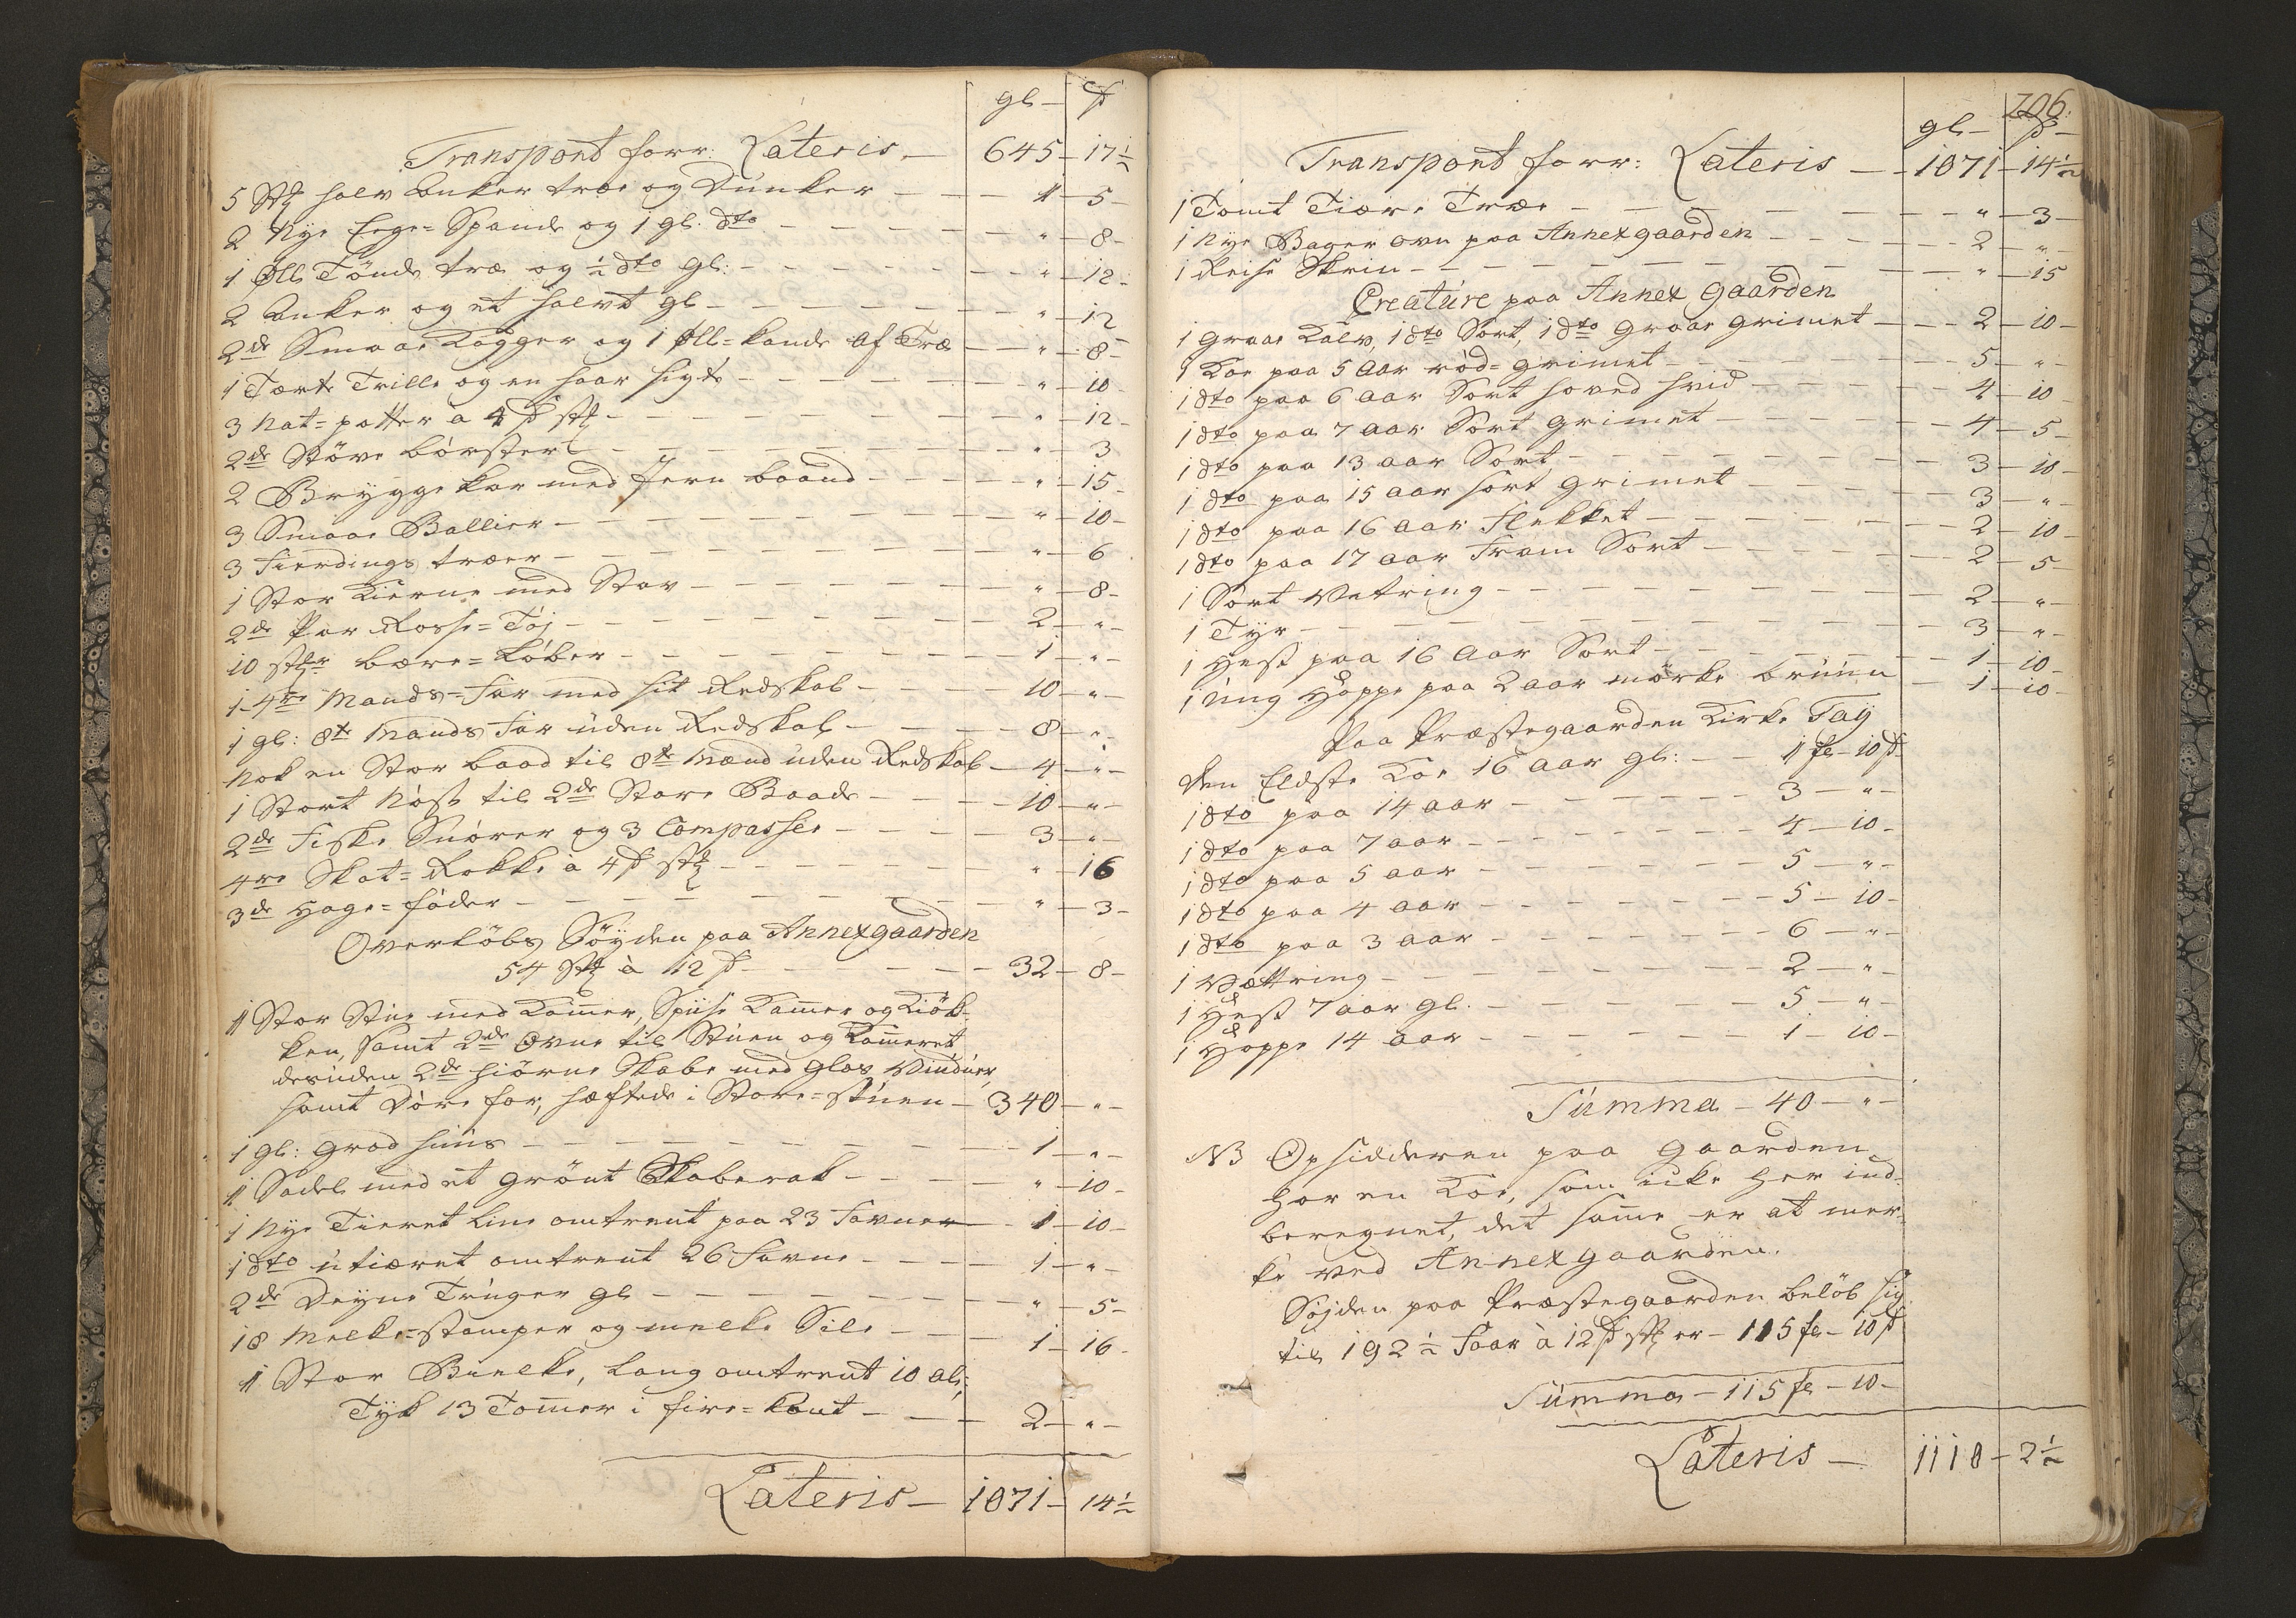 gl – ß
Transport forr: Lateris – 645 – 17½
5 st halv Anker træe og Dunker – – 1 – 5 –
2 Nye Eege-Spande og 1 gl: dto – – „ – 8 –
1 Øll Tönde træ og ½ dto gl: – – „ – 12 –
2 Anker og et halvt gl – – „ – 12
2de Smaae Dagger og 1 Øll-kande af Træ – „ – 8 –
1 Tært Trille og en haar sigte – – „ – 10
3 Nat-potter a 4 ß st – – „ – 12 –
2de Stöve börster – – „ – 3
2 Brygge kar med Jern baand – – „ – 15 –
3 Smaae Ballier – – „ – 10 –
3 Fierdings træer – – „ – 6
1 Stor Kierne med Stav – – „ – 8 –
2de Par Rosse-Töj – – 2 – „ –
10 st bære-Löber – – 1 – „ –
1 4re Mands-Far med sit Redskab – – 10 – „ –
1 gl: 8te Mands Far uden Redskab – – 8 – „ –
Nok en Stor baad til 8te Mænd uden Redskab – 4 – „ –
1 Stort Nöst til 2de Store Baade – – 10 – „ –
2de Fiske Snörer og 3 Compasser – – 3 – „ –
4re Skat-Rekke à 4 ß st – – „ – 16
3de Hage-föder – – „ – 3 –
Overlöbs Söyden paa Annexgaarden
54 st à 12 ß – – 32 – 8 –
1 Stor Stue med Kammer, Spise Kammer og Kiök-
ken, samt 2de Ovne til Stuen og Kammeret
desuden 2de hiörne Skabe med Glas Vinduer,
samt Döre for, hæftede i Store-stuen – 340 – „ –
1 gl: Grad huus – – 1 – „ –
1 Sadel med et grönt Skaberak – – „ – 10 –
1 Nye Tieret Line omtrent paa 23 Favner – 1 – 10 –
1 dto utiæret omtrent 26 Favne – – 1 – „ –
2de Deyne Truger gl – – „ – 5 –
18 Melke-stamper og melke Sile – – 1 – 16 –
1 Stor Bielke, lang omtrent 10 al:,
Tyk 13 Tommer i fire-kant – – 2 – „ –
Lateris – 1071 – 14½
206.
gl – ß –
Transport forr: Lateris – 1071 – 14½
1 Tomt Tiære Træe – – „ – 3 –
1 Nye Bager ovn paa Annexgaarden – – 2 – „ –
1 Reise Skrin – – „ – 15
Creature paa Annex Gaarden
1 graae Kalv, 1 dto Sort, 1 dto Graae grimet – – 2 – 10 –
1 Koe paa 5 Aar röd-grimet – – 5 – „ –
1 dto paa 6 aar Sort hoved hvid – – 4 – 10 –
1 dto paa 7 aar Sort grimet – – 4 – 5 –
1 dto paa 13 aar Sort – – 3 – 10 –
1 dto paa 15 aar sort grimet – – 3 – „ –
1 dto paa 16 aar Flekket – – 2 – 10 –
1 dto paa 17 aar Fram Sort – – 2 – 5 –
1 Sort Vetring – – 2 – „ –
1 Tyr – – 3 – „ –
1 Hest paa 16 Aar Sort – – 1 – 10 –
1 ung Hoppe paa 2 aar mörke bruun – 1 – 10 –
Paa Præstegaarden Kirke Tay
den Eldste Koe 16 aar gl: – – 1 fl – 10 ß
1 dto paa 14 aar – – 3 – „ –
1 dto paa 7 aar – – 4 – 10 –
1 dto paa 5 aar – – 5 – „ –
1 dto paa 4 aar – – 5 – 10 –
1 dto paa 3 aar – – 6 – „ –
1 Vættring – – 2 – „ –
1 Hest 7 aar gl. – – 5 – „ –
1 Hoppe 14 aar – – 1 – 10 –
Summa – 40 – „ –
NB Opsidderen paa Gaarden
har en Koe, som icke her ind-
beregnet, det samme er at mer-
ke ved Annexgaarden.
Söjden paa Præstegaarden belöb sig
til 192½ Faar à 12 ß st er – 115 fl – 10 ß
Summa – 115 fl – 10 –
Lateris – 1110 – 2½